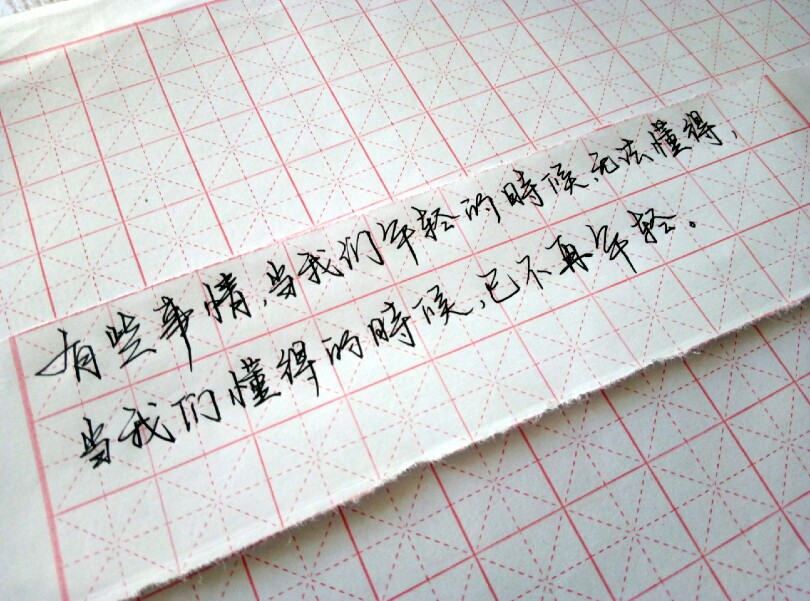 有些事情,当我们年轻的時候无法懂得,
当我们懂得的時候,已不再年轻。